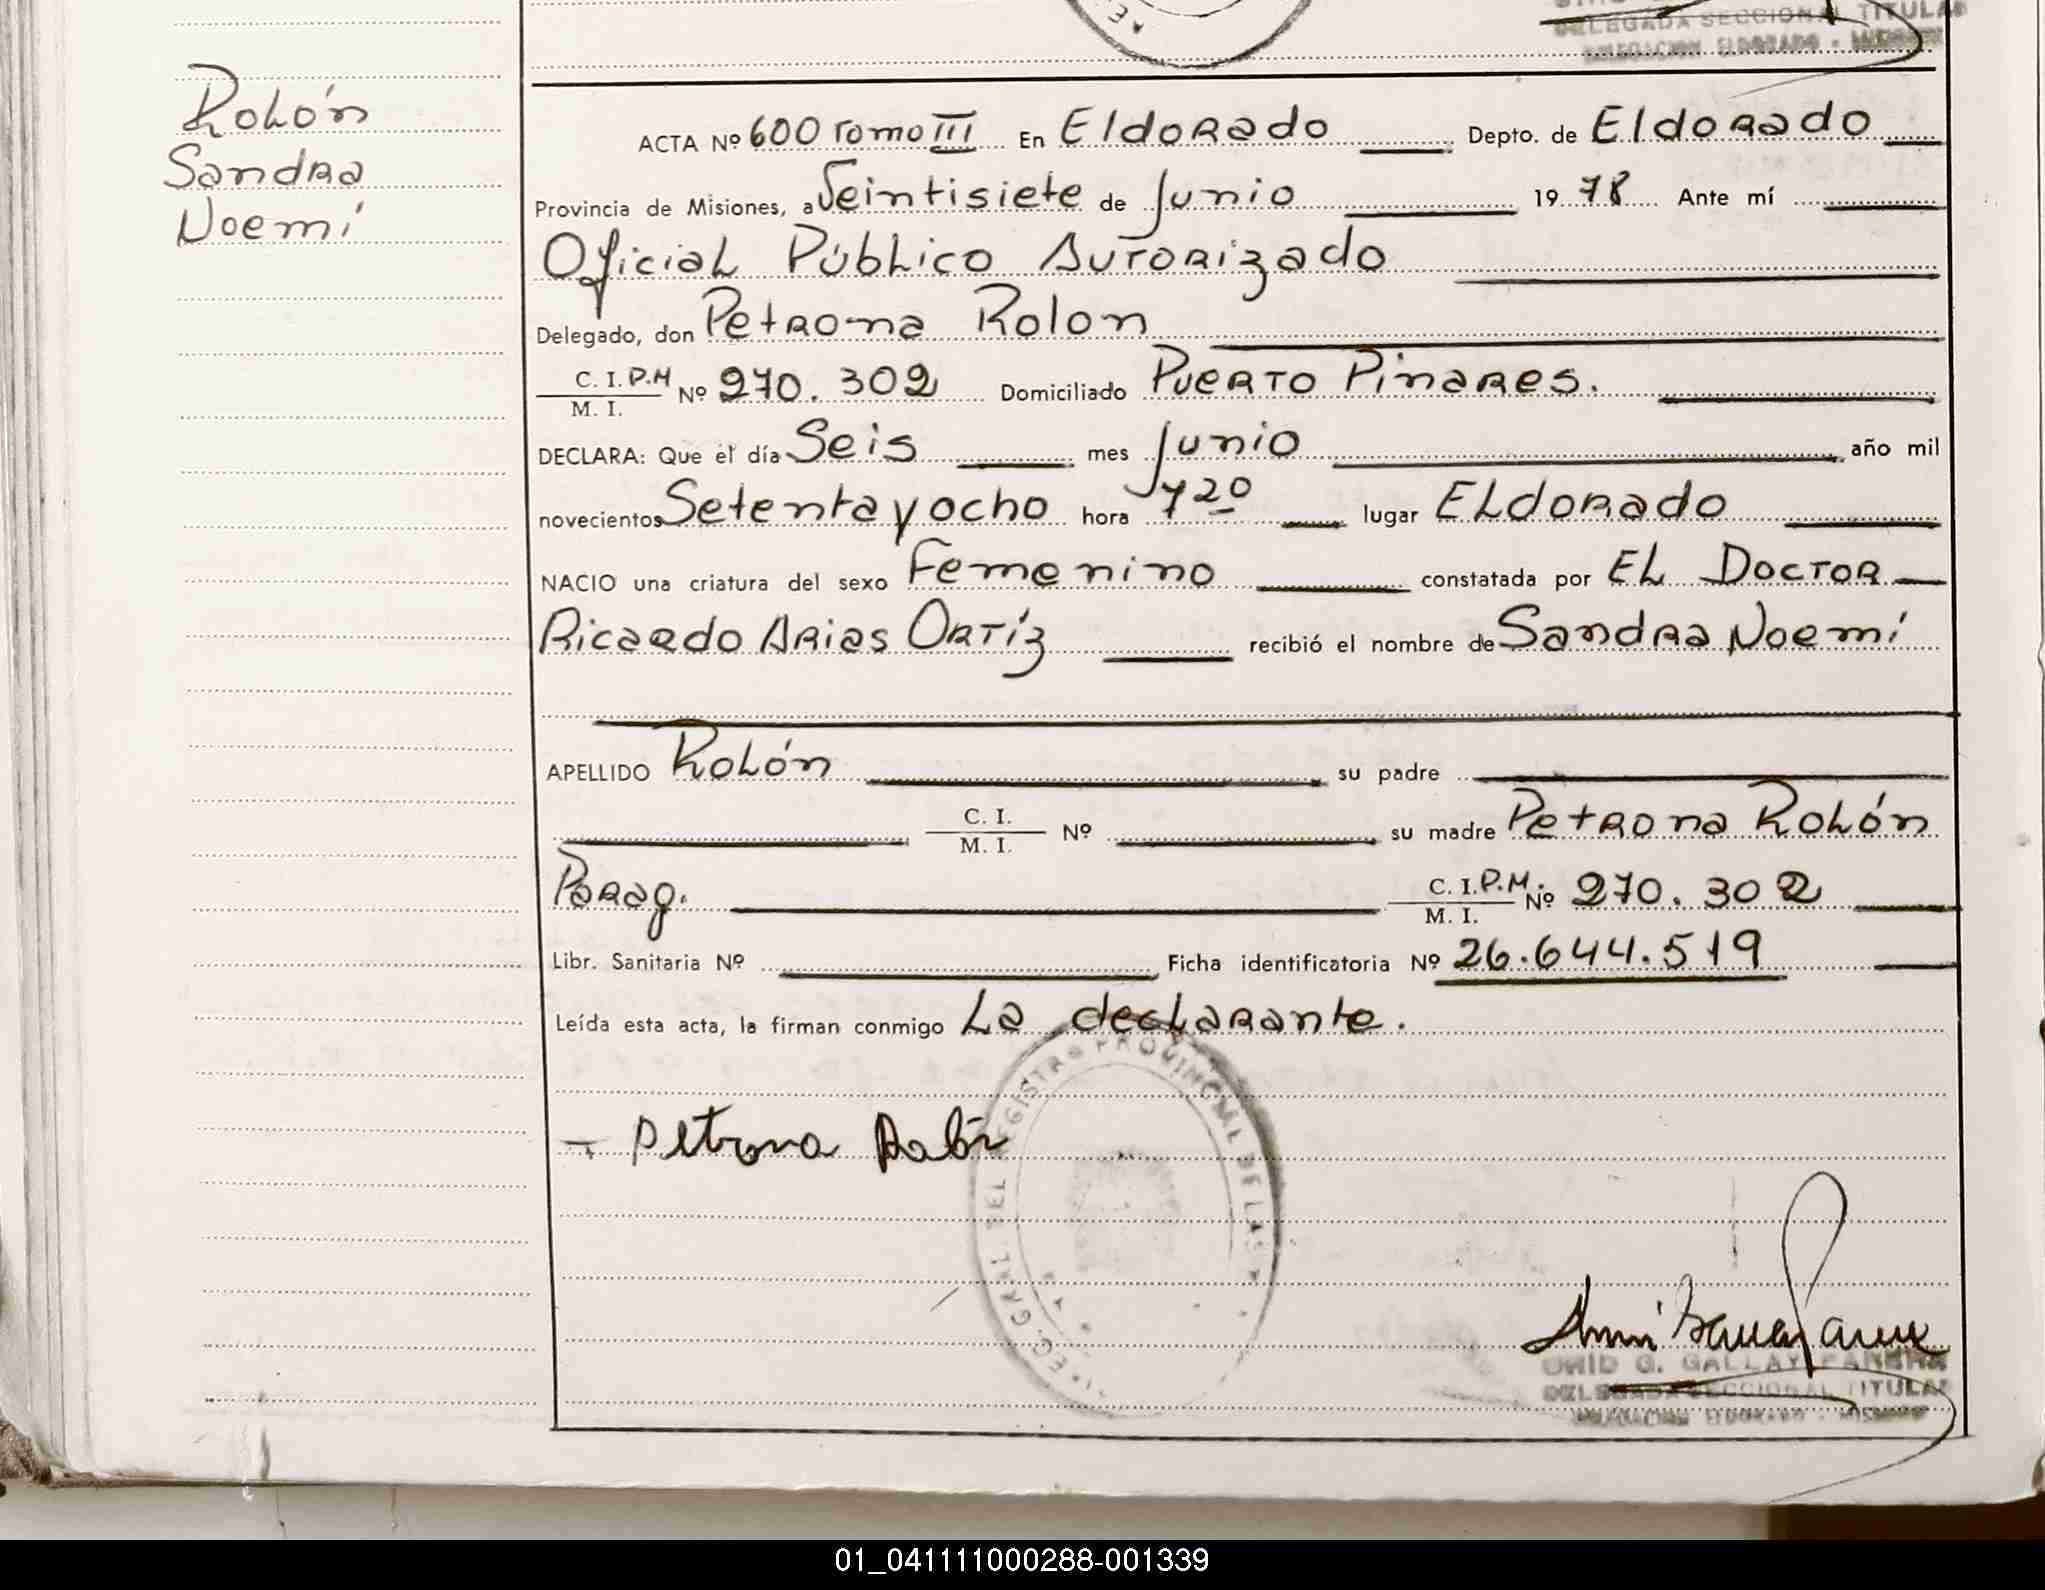 DELEGADA SECCIONAL TITULAR
DELEGACION ELDORADO - MISIONES
Rolón
Sandra
Noemí
ACTA Nº 600 Tomo III En Eldorado Depto. de Eldorado
Provincia de Misiones, a Veintisiete de Junio 1978 Ante mí
Oficial Público Autorizado
Delegado, don Petrona Rolon
C. I. P.M Nº 270.302 Domiciliado Puerto Pinares.
M. I.
DECLARA: Que el día Seis mes Junio año mil
novecientos Setenta y ocho hora 7 20 lugar Eldorado
NACIO una criatura del sexo Femenino constatada por El Doctor
Ricardo Arias Ortíz recibió el nombre de Sandra Noemí
APELLIDO Rolón su padre
C. I. Nº su madre Petrona Rolón
M. I.
Parag. C. I. P.M. Nº 270.302
M. I.
Libr. Sanitaria Nº Ficha identificatoria Nº 26.644.519
Leída esta acta, la firman conmigo La declarante.
GRAL DEL REGISTRO PROVINCIAL DE LAS
Petrona Rolón
G. GALLAY
DELEGADA SECCIONAL TITULAR
DELEGACION ELDORADO - MISIONES
01_041111000288-001339